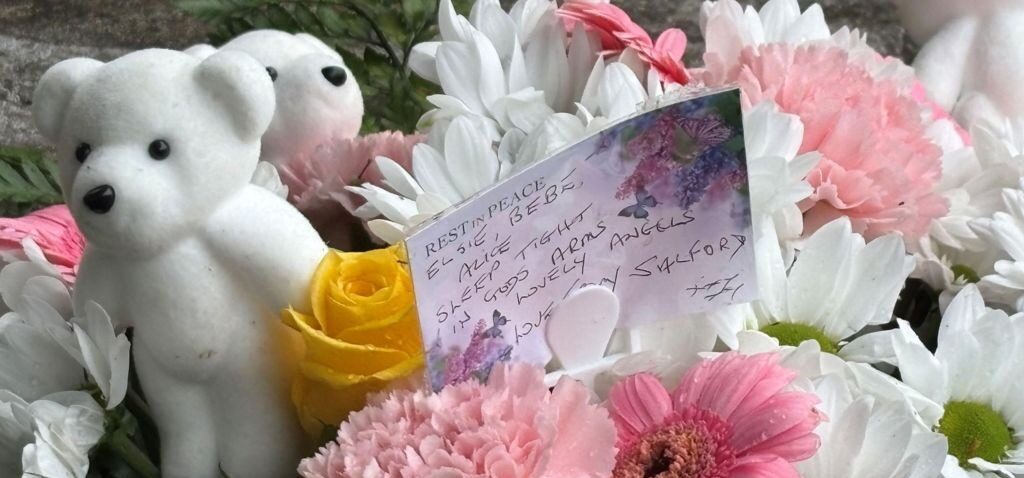 REST IN PEACE
ELSIE, BEBE,
ALICE
SLEEP TIGHT
IN GODS ARMS
LOVELY ANGELS
LOVE FROM SALFORD